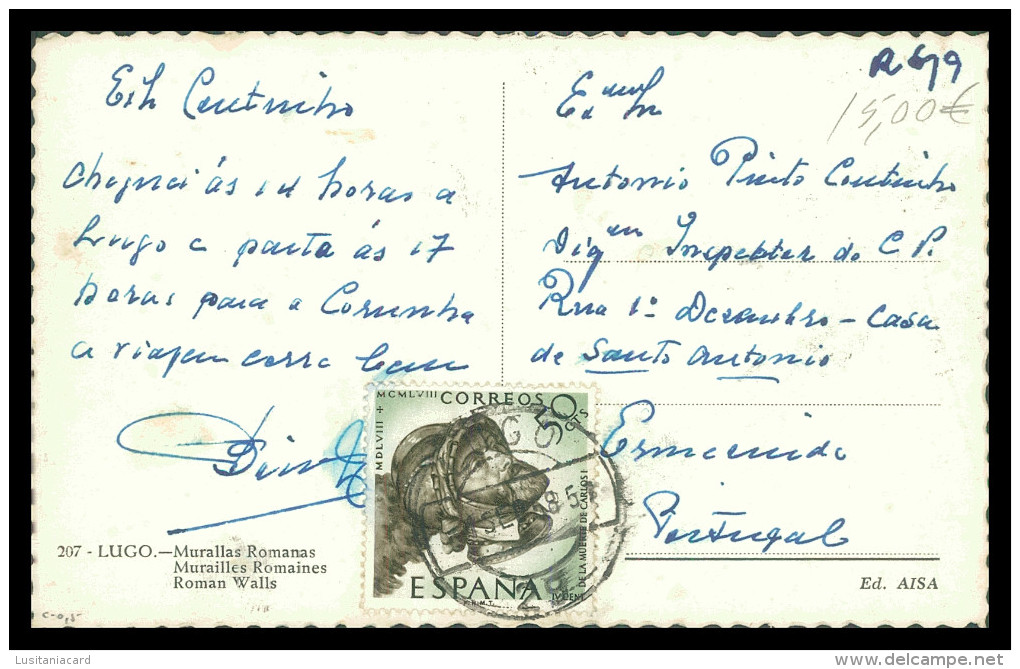 Coutinho
cheguei ás 14 horas a
Lugo e parto ás 17
horas para a Corunha
a viagem corre bem
207 - LUGO.—Murallas Romanas
Murailles Romaines
Roman Walls
C-0,5
MCMLVIII CORREOS 50 CTS
MDLVIII +
IV CENT. DE LA MUERTE DE CARLOS I
ESPAÑA
F.N.M.T.
15,00€
Antonio Pinto Coutinho
Inspector da C P.
Rua 1º Dezembro - Casa
de Santo Antonio
Ermezinde
Portugal
Ed. AISA
Lusitaniacard
www.delcampe.net